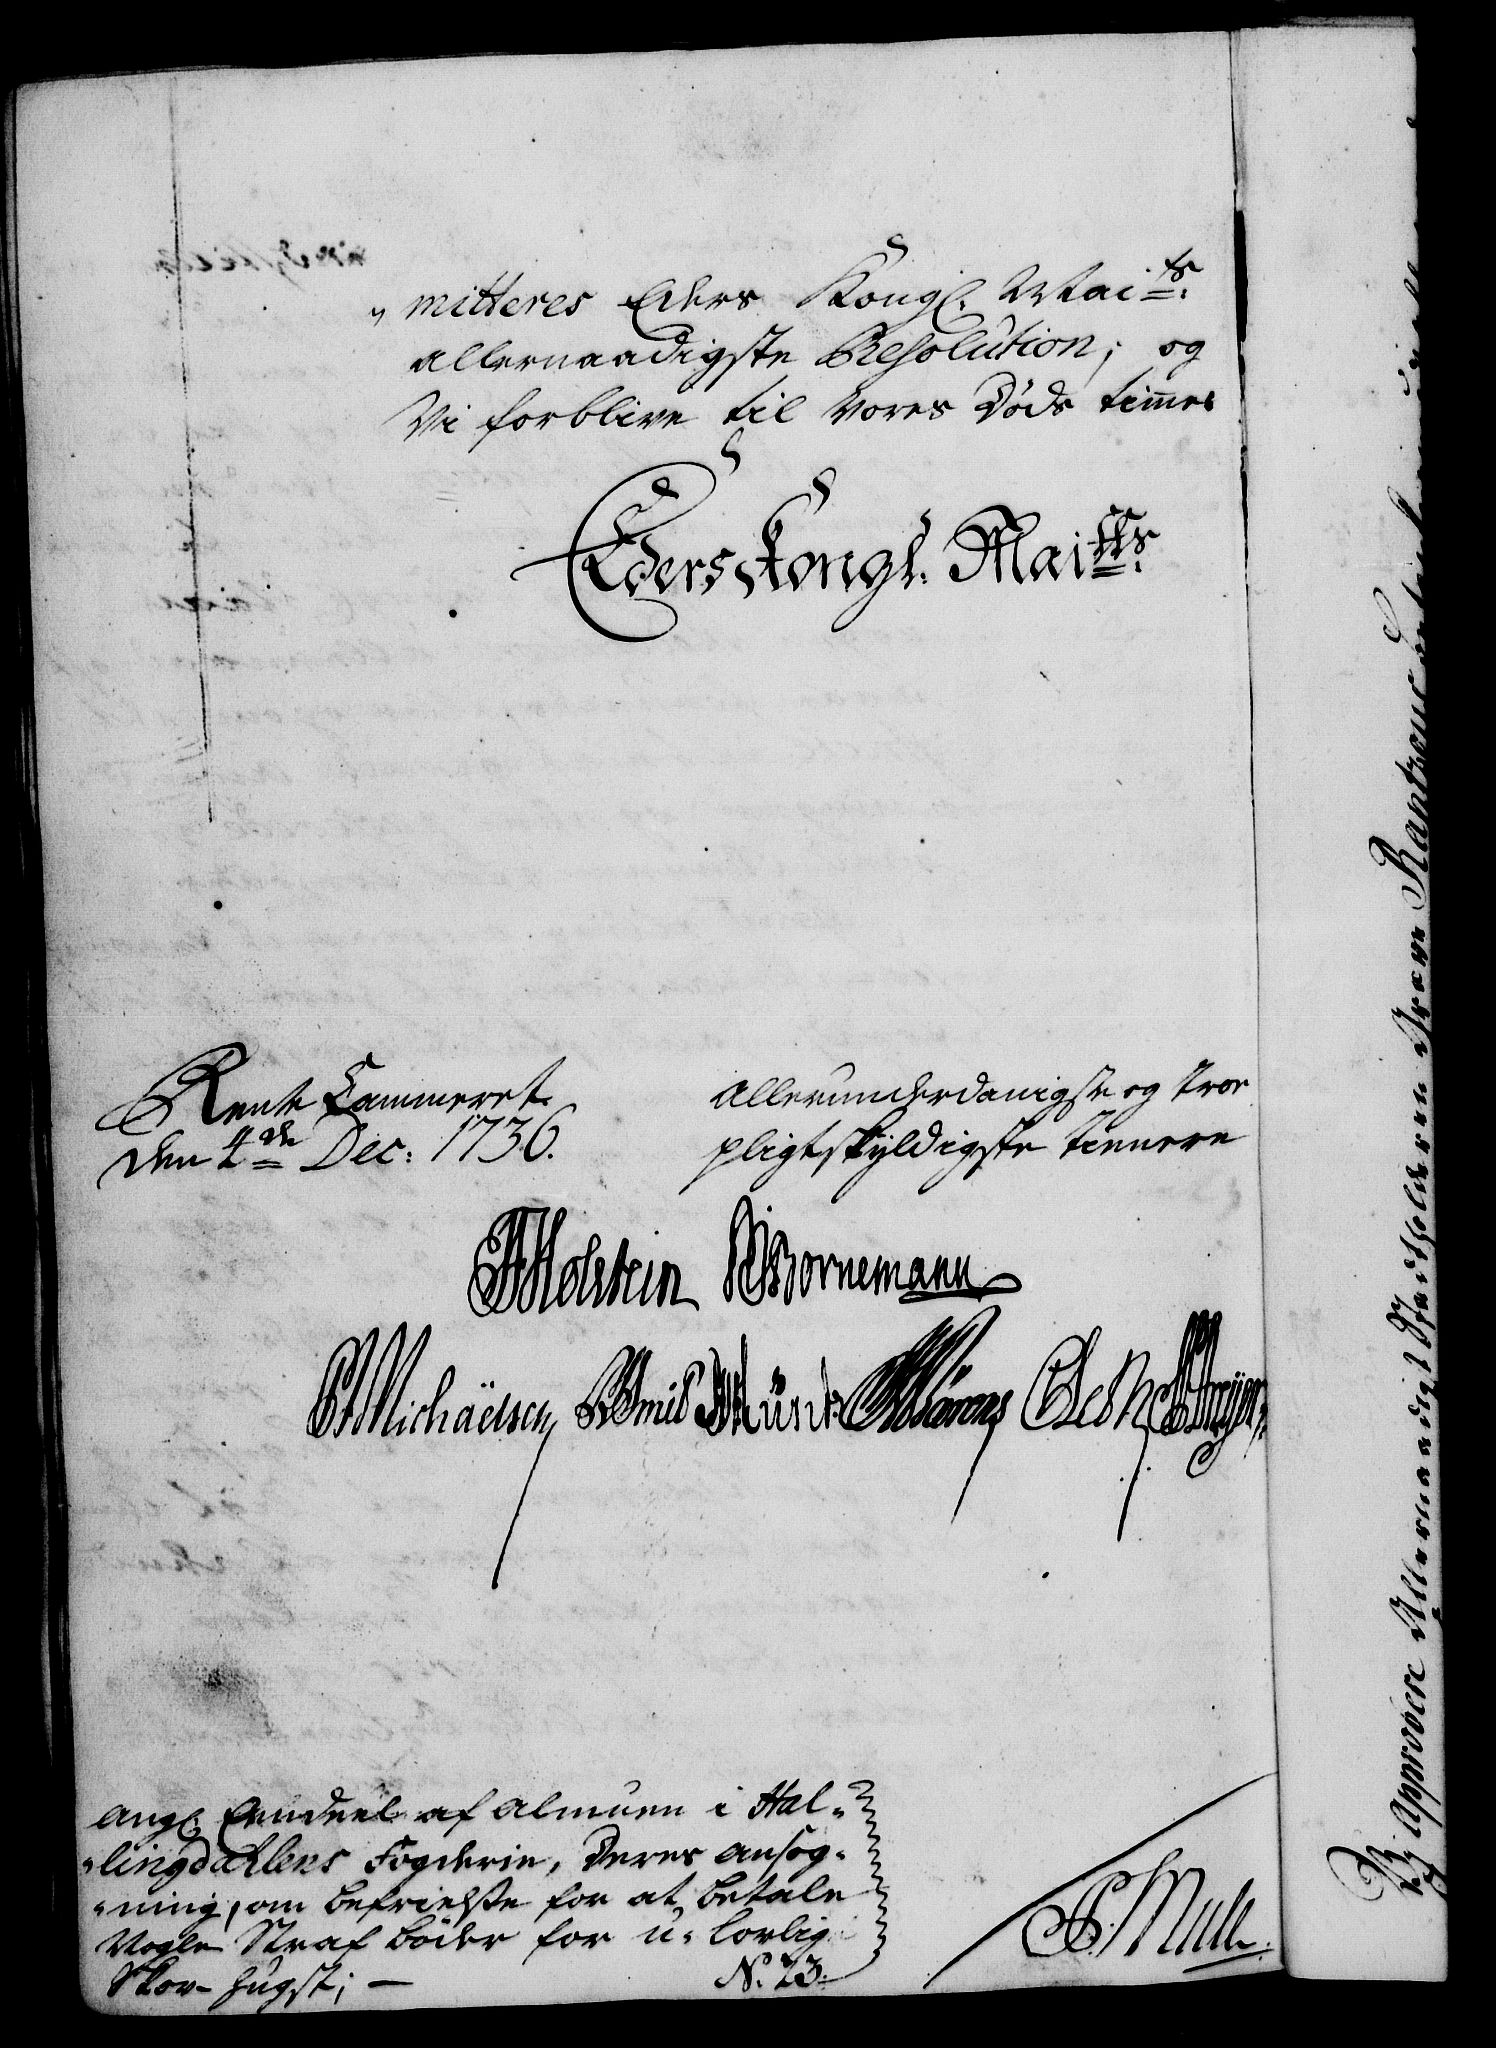 mitteres Eders Kongl. Mai ts.
allernaadigste Resolution; og
Vi forblive til Vores Døds timmer
Eders Kongl. Mai tts.
Rente Cammeret.
den 4de Dec: 1736.
allerunderdanigste og troe
pligtskyldigste tienere
Holstein Bornemann
Michaëlsen
angl. Eendeel af almuen i Hal-
-lingdahlens Fogderie, deres ansøg-
-ning, om befrielse for at betale
Nogle Straf bøder for u-lovlig
Skov-hugst; —
N. 23.
Mule.
Vi Approbere Allernaadigst Stadtholderen Greve Rantzous